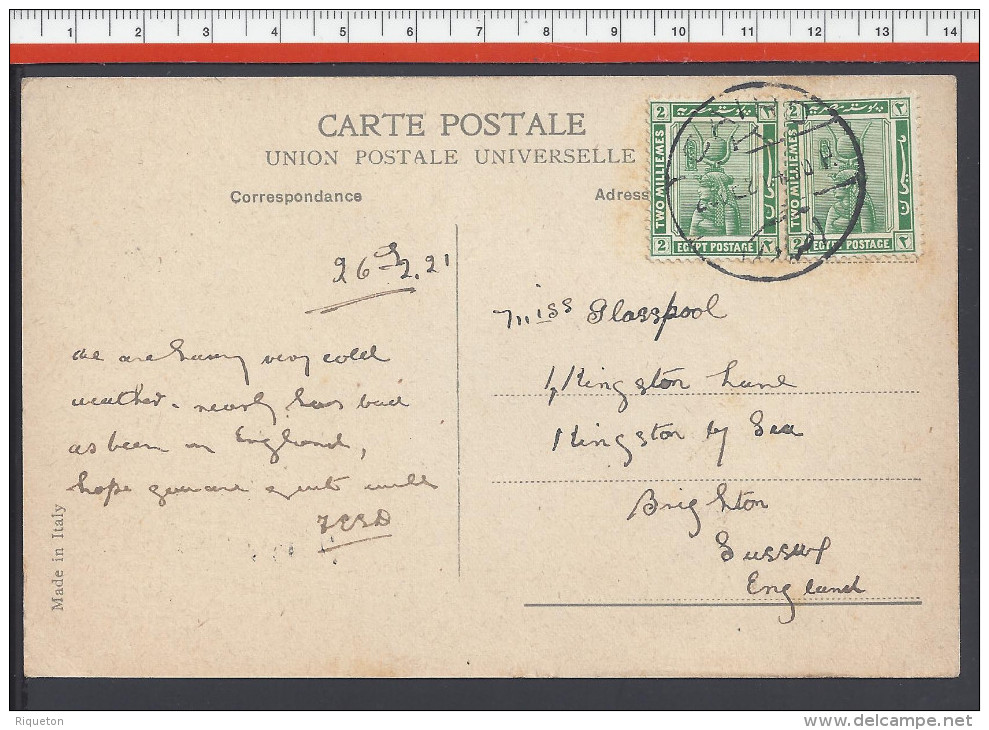 1 2 3 4 5 6 7 8 9 10 11 12 13 14
CARTE POSTALE
UNION POSTALE UNIVERSELLE
Correspondance
Adress
2
2
TWO MILLIEMES
TWO MILLIEMES
2 EGYPT POSTAGE ٢
2 EGYPT POSTAGE ٢
CAIRO
26 2.21
we are having very cold
weather. nearly has bad
as been in England,
hope you are quite well
Miss Glasspool
Kingston Lane
Kingston by Sea
Brighton
Sussex
England
Made in Italy
Riqueton
www.delcampe.net